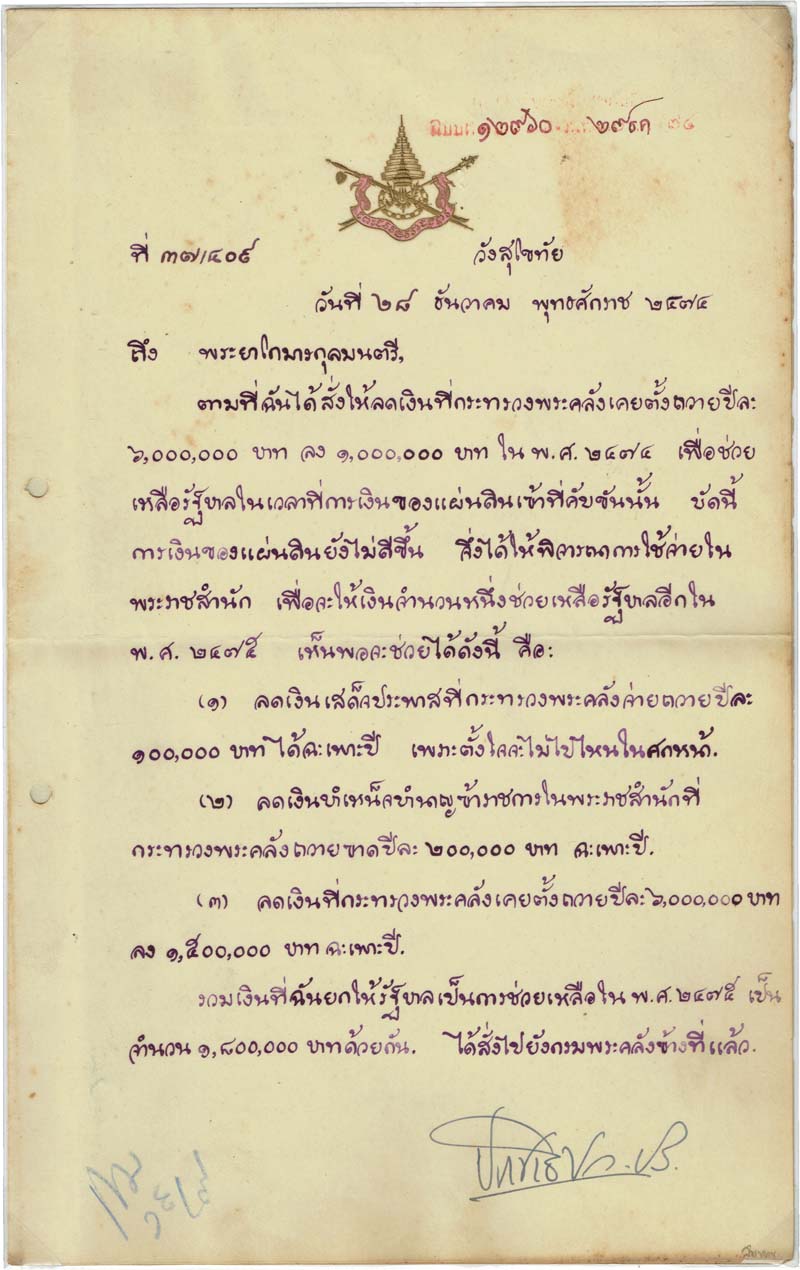 ๑๒๙๖๐ ๒๙ธค ๗๔
ที่ ๓๗/๔๐๙ วังสุโขทัย
วันที่ ๒๘ ธันวาคม พุทธศักราช ๒๔๗๔
ถึง พระยาโกมารกุลมนตรี,
ตามที่ฉันได้สั่งให้ลดเงินที่กระทรวงพระคลังเคยตั้งถวายปีละ
๖,๐๐๐,๐๐๐ บาท ลง ๑,๐๐๐,๐๐๐ บาท ใน พ.ศ. ๒๔๗๔ เพื่อช่วย
เหลือรัฐบาลในเวลาที่การเงินของแผ่นดินเข้าที่คับขันนั้น บัดนี้
การเงินของแผ่นดินยังไม่ดีขึ้น จึ่งได้ให้พิจารณาการใช้จ่ายใน
พระราชสำนัก เพื่อจะให้เงินจำนวนหนึ่งช่วยเหลือรัฐบาลอีกใน
พ.ศ. ๒๔๗๕ เห็นพอจะช่วยได้ดังนี้ คือ:
(๑) ลดเงินเสด็จประพาสที่กระทรวงพระคลังจ่ายถวายปีละ
๑๐๐,๐๐๐ บาท ได้ฉะเพาะปี เพราะตั้งใจจะไม่ไปไหนในศกหน้า.
(๒) ลดเงินบำเหน็จบำนาญข้าราชการในพระราชสำนักที่
กระทรวงพระคลังถวายขาดปีละ ๒๐๐,๐๐๐ บาท ฉะเพาะปี.
(๓) ลดเงินที่กระทรวงพระคลังเคยตั้งถวายปีละ ๖,๐๐๐,๐๐๐ บาท
ลง ๑,๕๐๐,๐๐๐ บาท ฉะเพาะปี.
รวมเงินที่ฉันยกให้รัฐบาลเป็นการช่วยเหลือใน พ.ศ. ๒๔๗๕ เป็น
จำนวน ๑,๘๐๐,๐๐๐ บาทด้วยกัน. ได้สั่งไปยังกรมพระคลังข้างที่แล้ว.
ประชาธิปก.ปร.